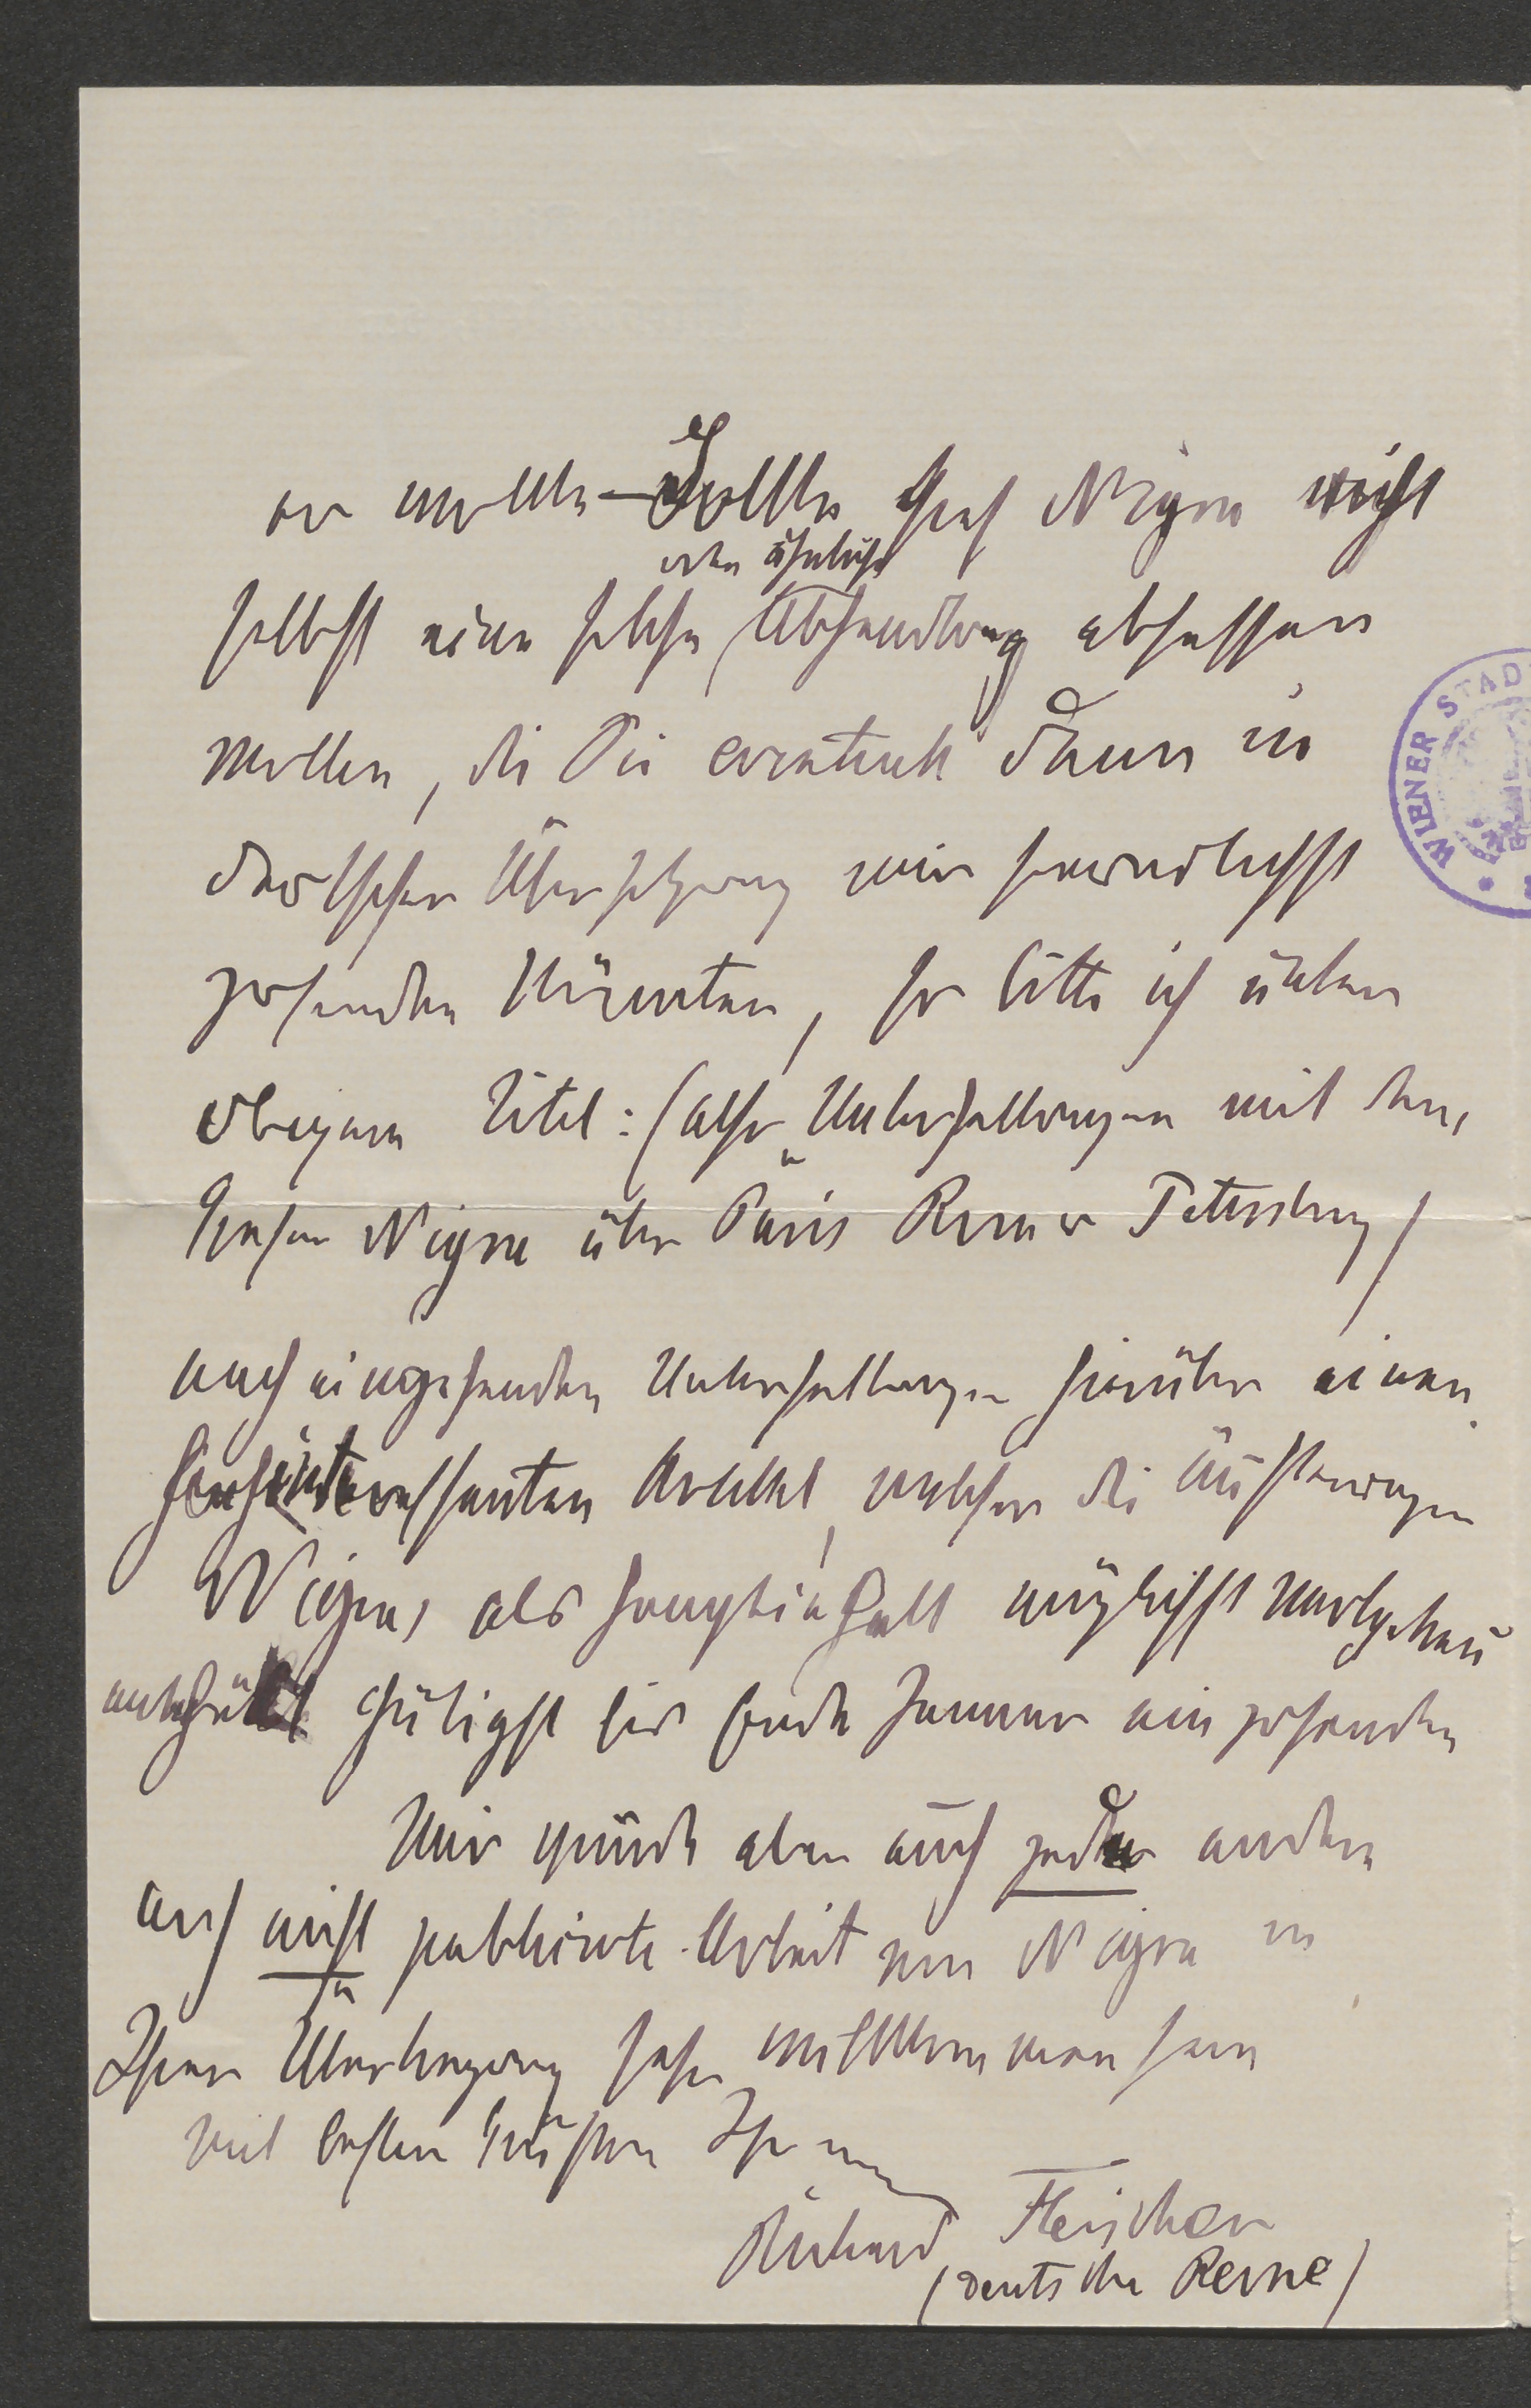 er wollte – Sollte Graf Nigra nicht
oder ähnliche
selbst eine solche Abhandlung abfassen
wollen, die Sie eventuell dann in
deutscher Übersetzung mir freundlichst
zusenden könnten, so bitte ich unter
obigem Titel: (also „Unterhaltungen mit dem
Grafen Nigra über Paris Rom u Petersburg)
nach eingehenden Unterhaltungen hierüber einen
hochinteressanten Artikel, welcher die Äußerungen
Nigras als Hauptinhalt möglichst wortgetreu
enthält gütigst bis Ende Januar einzusenden
Mir würde aber auch jede andere
noch nicht publicirte Arbeit von Nigra in
Ihrer Übertragung sehr willkommen sein
Mit besten Grüßen Ihr
Richard Fleischer
(Deutsche Revue)
WIENER STAD